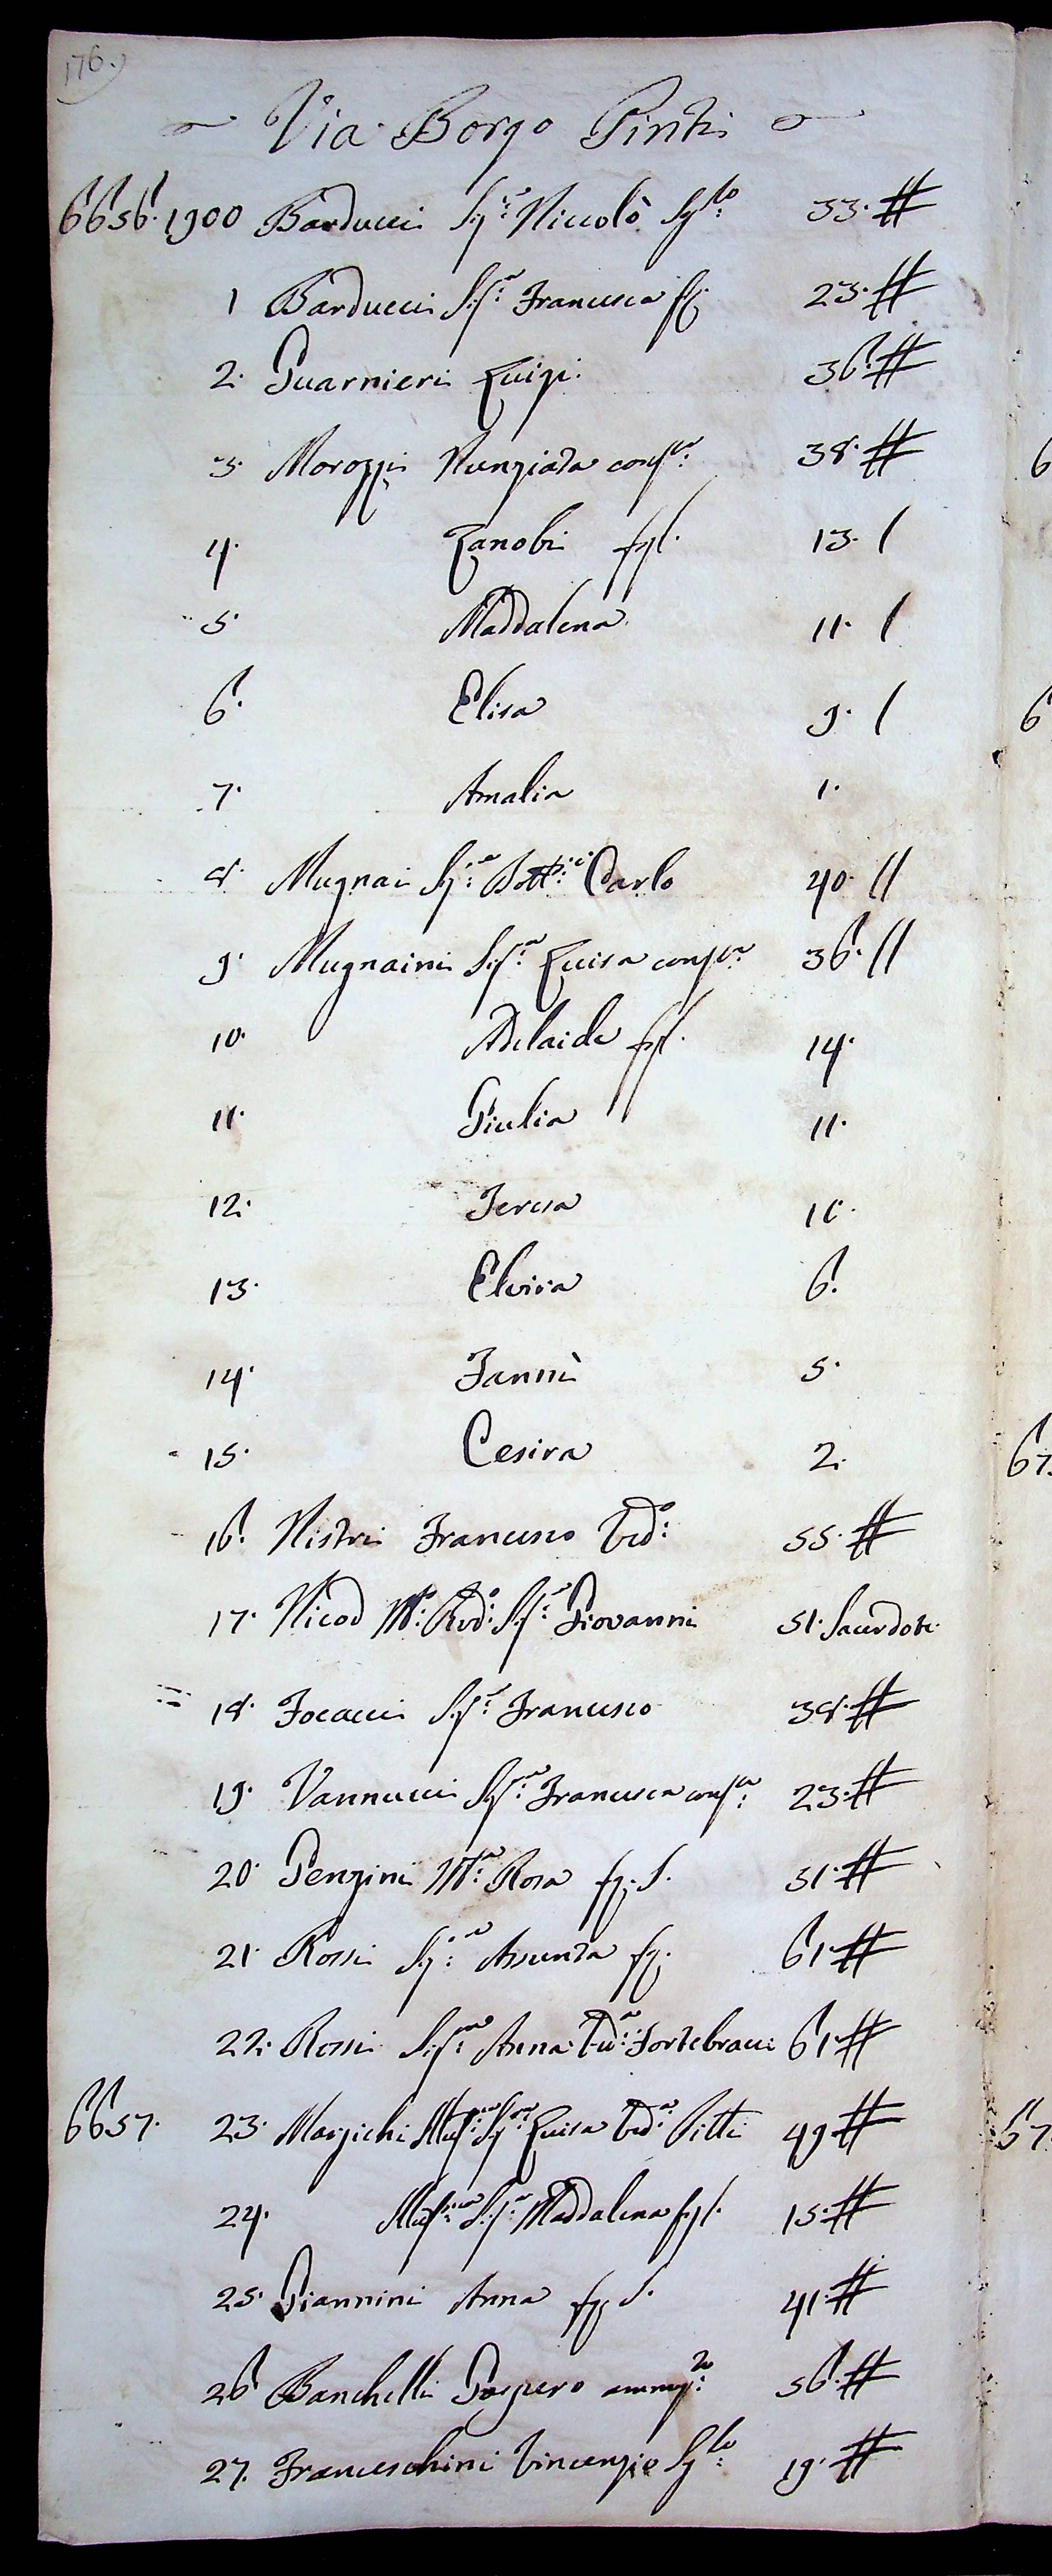 176.
Via Borgo Pinti
6656. 1900 Barducci Sig.re Niccolò Sg.lo 33. #
1 Barducci Sig.ra Francesca fg. 23. #
2. Guarnieri Luigi. 36. #
3. Morozzi Nunziata cons.te 38. #
4. Zanobi figl. 13. /
5. Maddalena 11. /
6. Elisa 9. /
7. Amalia 1.
8. Mugnai Sig.re Dott.re Carlo 40. //
9. Mugnaini Sig.ra Luisa cons.te 36. //
10. Adelaide figl. 14.
11. Giulia 11.
12. Teresa 10.
13. Elvira 6.
14. Fannì 5.
15. Cesira 2.
16. Nistri Francesco Ved.o 55. #
17. Nicod M.to Rvd.o Sig.re Giovanni 51. Sacerdote
18. Focacci Sig.re Francesco 38. #
19. Vannucci Sig.ra Francesca cons.te 23. #
20. Penzini M.a Rosa fg. S. 31. #
21. Rossi Sig.ra Assunta fg. 61. #
22. Rossi Sig.ra Anna Ved.a Fortebracci 61 #
6657. 23. Marzichi Sig.ra Luisa Ved.a Pitti 49 #
24. Sig.ra Maddalena figl. 15. #
25. Giannini Anna fg. S. 41. #
26 Banchelli Gaspero ammog.to 56. #
27. Franceschini Vincenzio Sg.lo 19. #